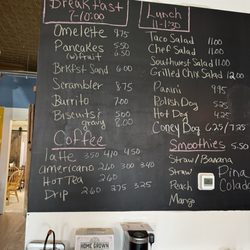 Breakfast
7-10:00
Omelette 8.75
Pancakes 5.50
(w) fruit 6.50
Brkfst Sand 6.00
Scrambler 8.75
Burrito 7.00
Biscuits & 5.00
gravy 8.00
Coffee
latte 350 410 450
americano 260 300 340
HOT TEA 260
Drip 260 275 325
Lunch
11-1:30
Taco Salad 11.00
Chef Salad 11.00
Southwest Salad 11.00
Grilled Chix Salad 12.00
Panini 9.95
Polish Dog 5.25
Hot Dog 4.25
Coney Dog 6.25/7.25
Smoothies 5.50
Straw/Banana
Straw
Peach
Mango
Pina
Colada
HOME GROWN